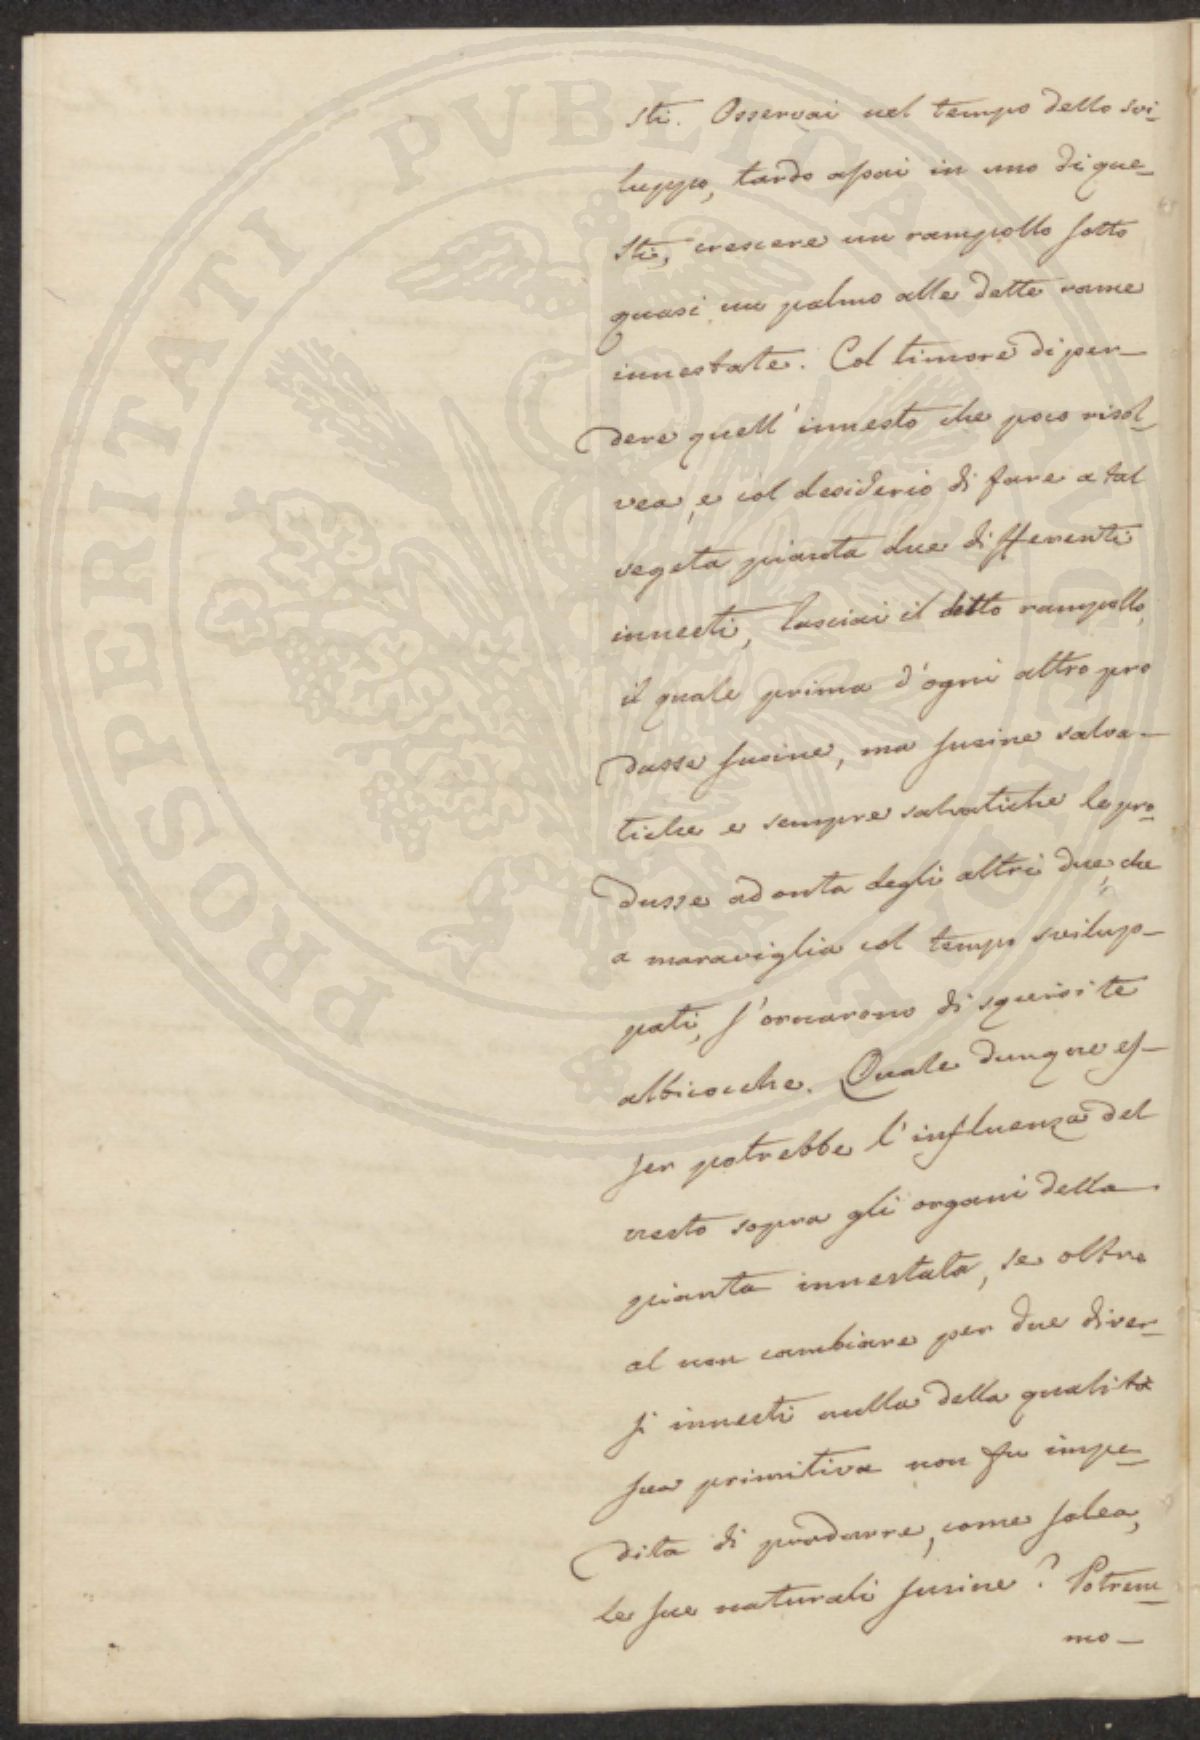 sti. Osservai nel tempo dello svi-
luppo, tardo assai in uno di que-
sti, crescere un rampollo sotto
quasi un palmo alle dette rame
innestate. Col timore di per-
dere quell'innesto che poco risol-
vea, e col desiderio di fare a tal
vegeta pianta due differenti
innesti, lasciai il detto rampollo,
il quale prima d'ogni altro pro
dusse susine, ma susine salva-
tiche e sempre salvatiche le pro-
dusse ad onta degli altri due, che
a maraviglia col tempo svilup-
pati, s'ornarono di squisite
albicocche. Quale dunque es-
ser potrebbe l'influenza del
nesto sopra gli organi della
pianta innestata, se oltre
al non cambiare per due diver-
si innesti nulla della qualità
sua primitiva non fu impe-
dita di produrre, come solea,
le sue naturali susine? Potrem-
mo-
PROSPERITATI PVBLICAE AVGENDAE